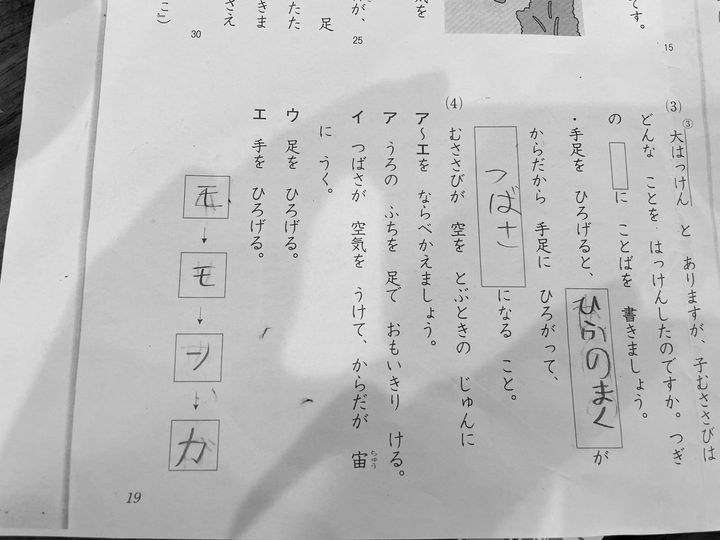 です。
15
気を
が、
25
足
たた
きま
さえ
30
こ)
(3) 大はっけん③ と ありますが、子むささびは
どんな ことを はっけんしたのですか。つぎ
の に ことばを 書きましょう。
・手足を ひろげると、ひふのまくが
からだから 手足に ひろがって、
つばさになる こと。
(4) むささびが 空を とぶときの じゅんに
ア〜エを ならべかえましょう。
ア うろの ふちを 足で おもいきり ける。
イ つばさが 空気を うけて、からだが 宙ちゅう
に うく。
ウ 足を ひろげる。
エ 手を ひろげる。
モ
↓
モ
↓
↓
カ
19